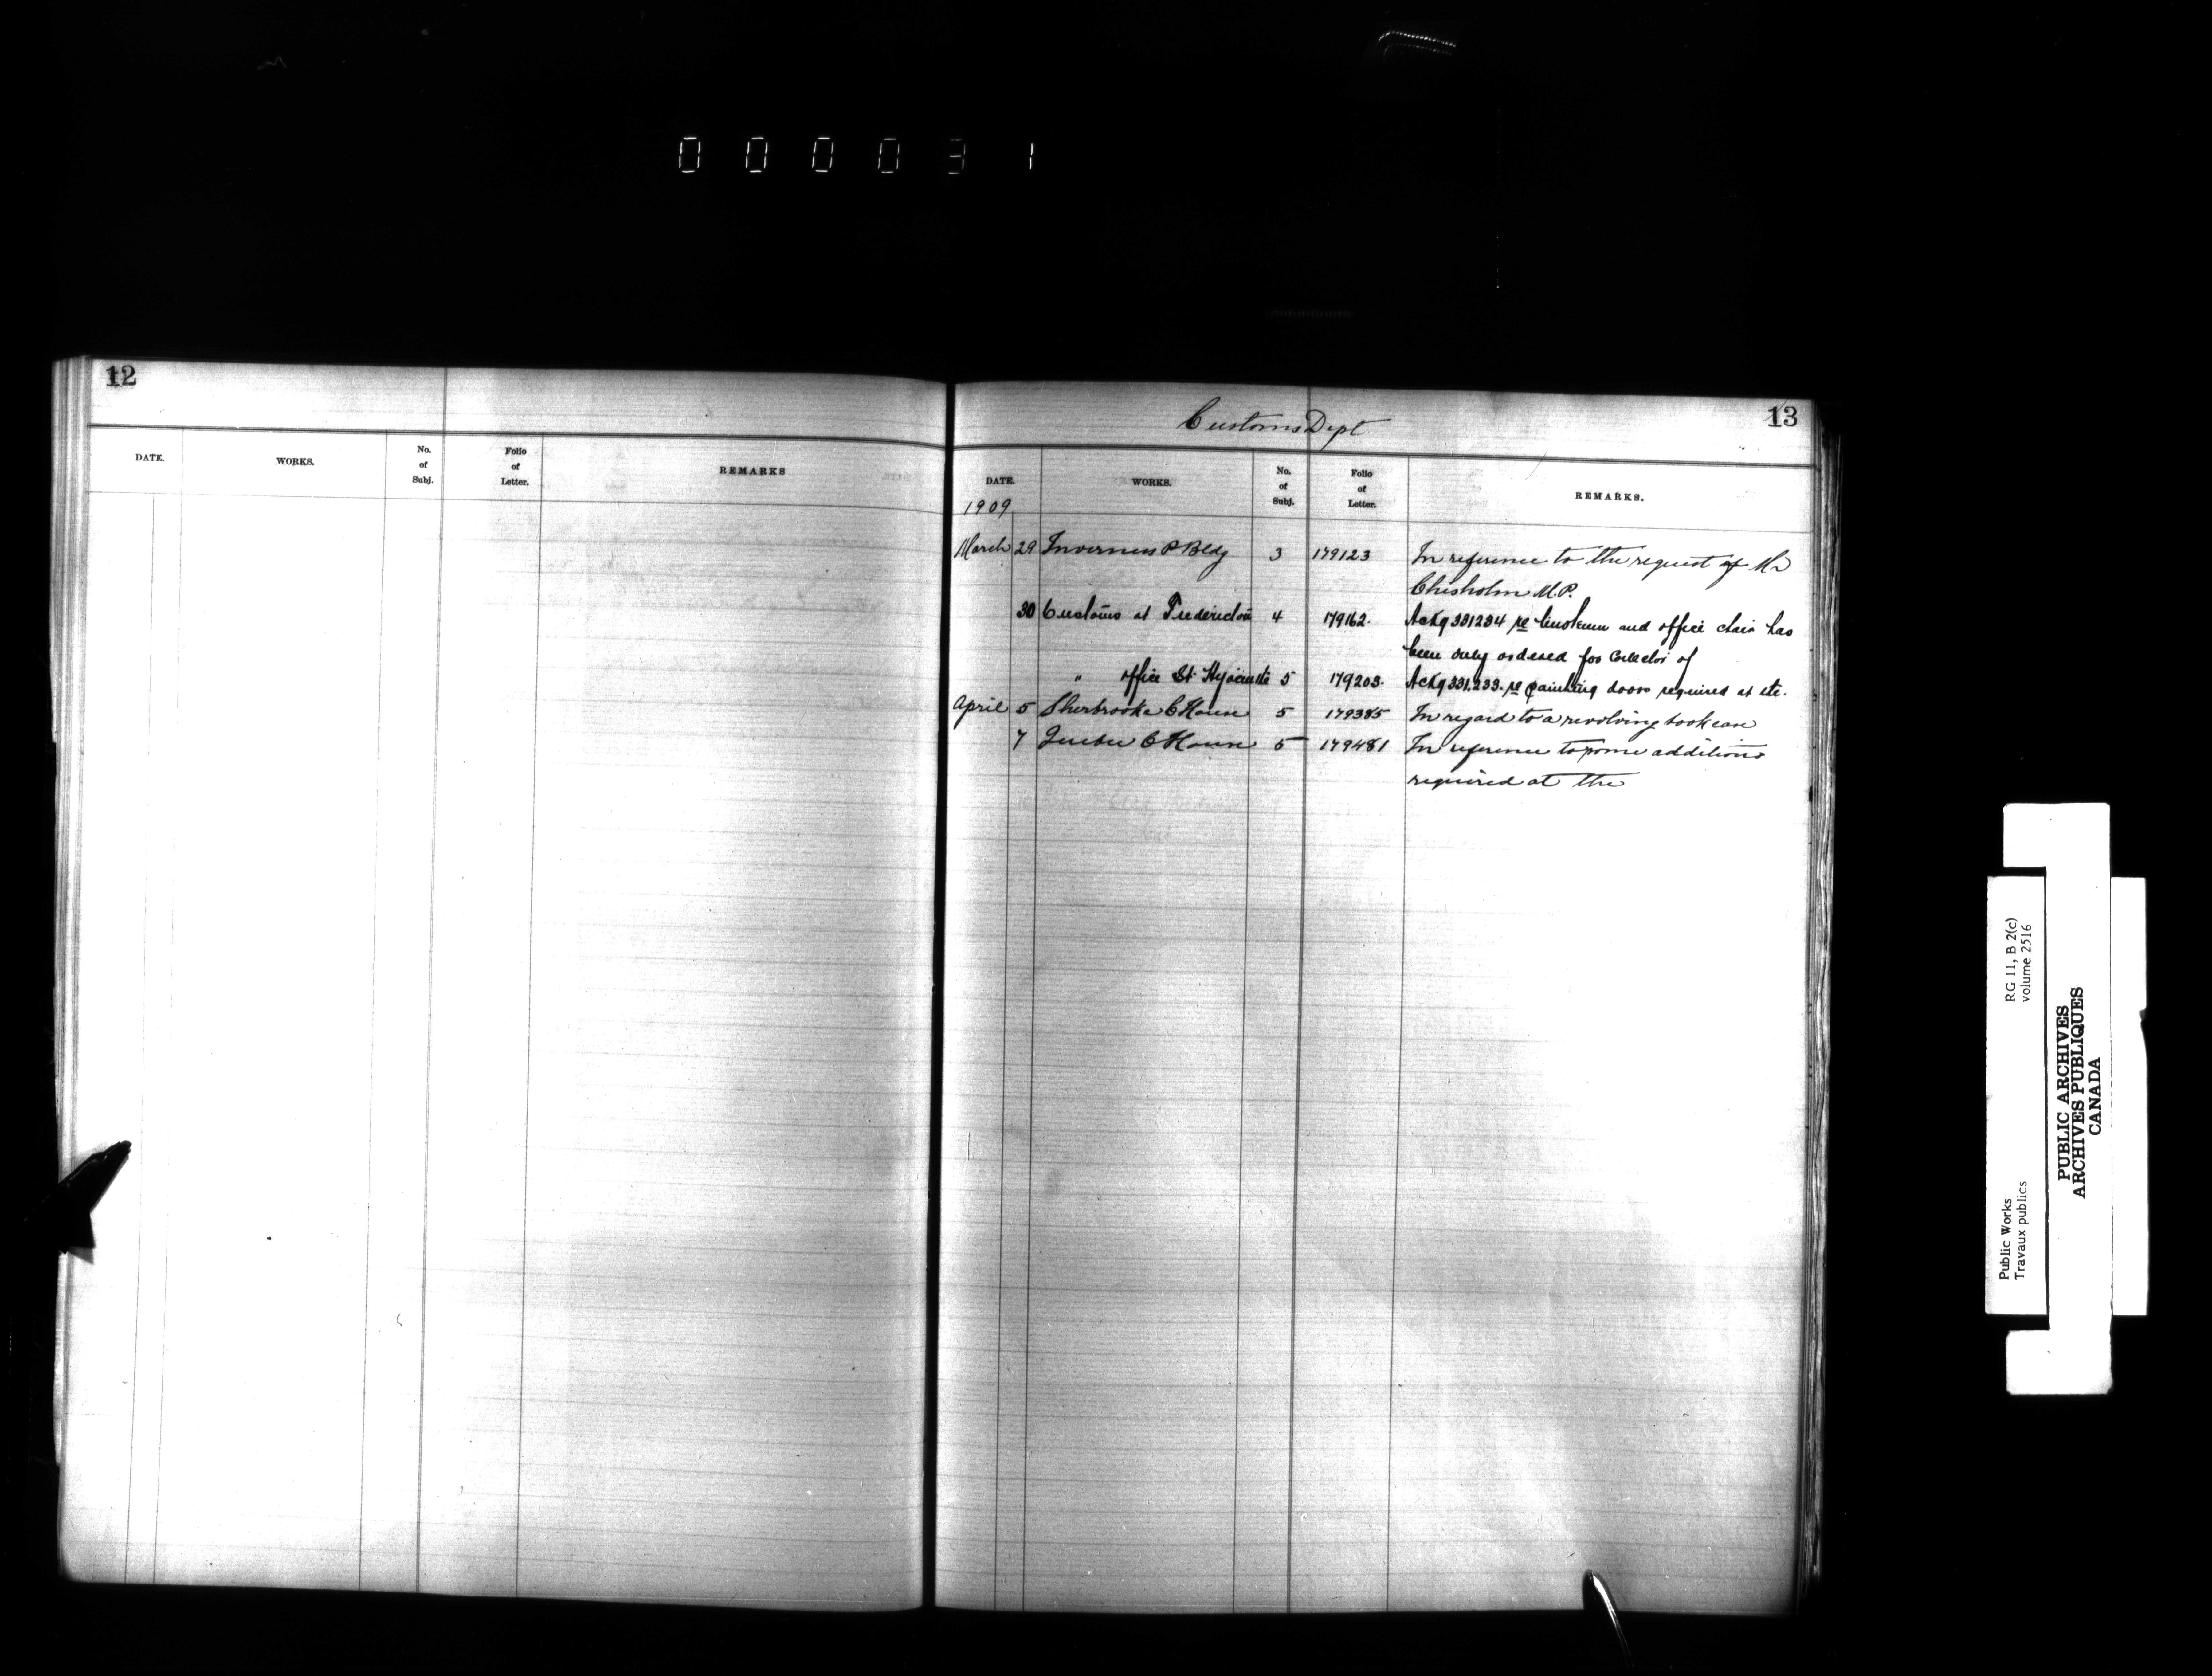 000031
12
DATE. WORKS. No. of Subj. Folio of Letter. REMARKS
Customs Dept
13
DATE. WORKS. No. of Subj. Folio of Letter. REMARKS.
1909
March 29 Inverness P Bldg 3 179123 In reference to the request of Mr
Chisholm M.P.
30 Customs at Fredericton 4 179162. Ackg 331234 re linoleum and office chair has
been duly ordered for Collector of
" office St. Hyacinthe 5 179203. Ackg 331.233. re painting doors required at etc.
April 5 Sherbrooke C House 5 179385 In regard to a revolving bookcase
7 Quebec C House 5 179481 In reference to some additions
required at the
Public Works
Travaux publics
RG 11, B 2(c)
volume 2516
PUBLIC ARCHIVES
ARCHIVES PUBLIQUES
CANADA